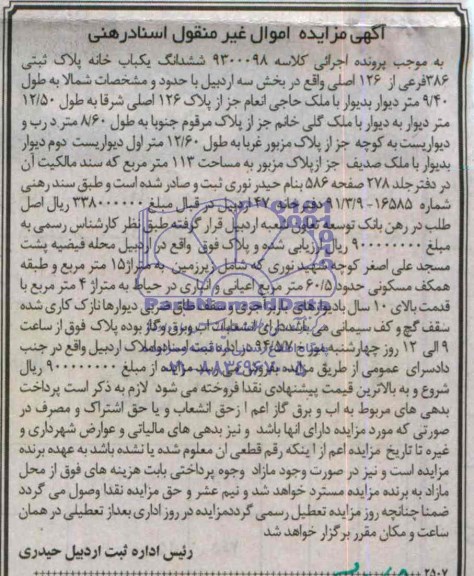 آگهی مزایده اموال غیر منقول اسناد رهنی
به موجب پرونده اجرائی کلاسه ۹۳۰۰۰۹۸ ششدانگ یکباب خانه پلاک ثبتی
۳۸۶فرعی از ۱۲۶ اصلی واقع در بخش سه اردبیل با حدود و مشخصات شمالا به طول
۹/۴۰ متر دیوار بدیوار با ملک حاجی انعام جز از پلاک ۱۲۶ اصلی شرقا به طول ۱۲/۵۰
متر دیوار به دیوار با ملک گلی خانم جز از پلاک مرقوم جنوبا به طول ۸/۶۰ متر درب و
دیواریست به کوچه جز از پلاک مزبور غربا به طول ۱۲/۶۰ متر اول دیواریست دوم دیوار
بدیوار با ملک صدیف جز ازپلاک مزبور به مساحت ۱۱۳ متر مربع که سند مالکیت آن
در دفتر جلد ۲۷۸ صفحه ۵۸۶ بنام حیدر نوری ثبت و صادر شده است و طبق سند رهنی
شماره ۱۶۵۸۵- ۹۱/۳/۹ دفترخانه ۴۷ اردبیل در قبال مبلغ ۳۳۸۰۰۰۰۰۰ ریال اصل
طلب در رهن بانک توسعه تعاون شعبه اردبیل قرار گرفته طبق نظر کارشناس رسمی به
مبلغ ۹۰۰۰۰۰۰۰۰ ریال ارزیابی شده و پلاک فوق واقع در اردبیل محله فیضیه پشت
مسجد علی اصغر کوچه شهید نوری که شامل زیرزمین به متراژ ۱۵ متر مربع و طبقه
همکف مسکونی حدود ۶۰/۵ متر مربع اعیانی و انباری در حیاط به متراژ ۴ متر مربع با
قدمت بالای ۱۰ سال بادیوارهای باربر آجری و سقف طاق ضربی دیوارها نازک کاری شده
سقف گچ و کف سیمانی می باشد دارای انشعابات آب و برق و گاز بوده پلاک فوق از ساعت
۹ الی ۱۲ روز چهارشنبه مورخ ۹۴/۵/۷ در اداره ثبت اسناد و املاک اردبیل واقع در جنب
دادسرای عمومی از طریق مزایده بفروش می رسد مزایده از مبلغ ۹۰۰۰۰۰۰۰۰ ریال
شروع و به بالاترین قیمت پیشنهادی نقدا فروخته می شود لازم به ذکر است پرداخت
بدهی های مربوط به آب و برق گاز اعم از حق انشعاب و یا حق اشتراک و مصرف در
صورتی که مورد مزایده دارای آنها باشد و نیز بدهی های مالیاتی و عوارض شهرداری و
غیره تا تاریخ مزایده اعم از اینکه رقم قطعی آن معلوم شده یا نشده باشد به عهده برنده
مزایده است و نیز در صورت وجود مازاد وجوه پرداختی بابت هزینه های فوق از محل
مازاد به برنده مزایده مسترد خواهد شد و نیم عشر و حق مزایده نقدا وصول می گردد
ضمنا چنانچه روز مزایده تعطیل رسمی گردد مزایده در روز اداری بعداز تعطیلی در همان
ساعت و مکان مقرر برگزار خواهد شد
رئیس اداره ثبت اردبیل حیدری
۲۵۰۷
ParsNamadData